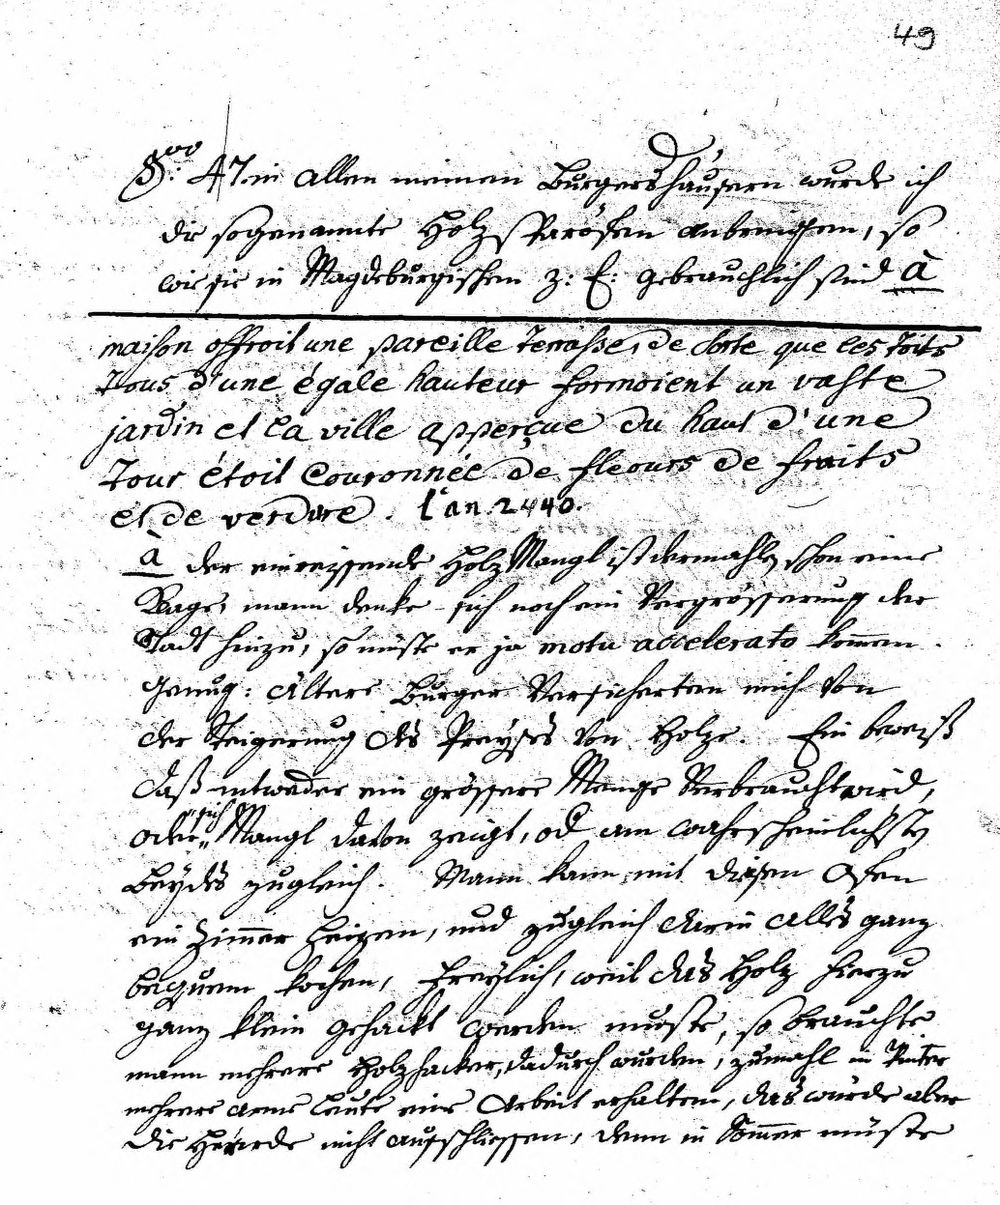 49
§: 47. in allen meinen Burgershäusern wurde ich
die sogenannte Holzsparöfen anbringen, so
wie sie in Magdeburgischen z: E: gebrauchlich sind à
maison offroit une pareille terrasse, de sorte que les toits
tous d'une égale hauteur formoient un vaste
jardin et la ville apperçue du haut d'une
tour étoit couronnée de fleurs de fruits
et de verdure. l'an. 2440.
à der einreissende Holz Mangl ist dermahls schon eine
Klage, mann denke sich noch ein Vergrösserung der
Stadt hinzu, so müste er ja motu accelerato kom̄en.
Genug: Ältere Burger Versicherten mich Von
der Steigerung des Preyses Von Holze. Ein beweiß
daß entweder ein grössere Menge Verbraucht wird,
oder sich Mangl davon zeigt, od am wahrscheinlichsten
Beydes zugleich. Mann kann mit diesen Ofen
ein Zim̄er heizen, und zugleich darin alles ganz
bequem kochen, Freylich, weil das Holz hierzu
ganz klein gehackt werden muste, so brauchte
mann mehrere Holzhacker, dadurch wurden, zumahl in Winter
mehrere arme Leute eine Arbeit erhalten, das wurde aber
die Heerde nicht ausschliessen, denn in Som̄er müste